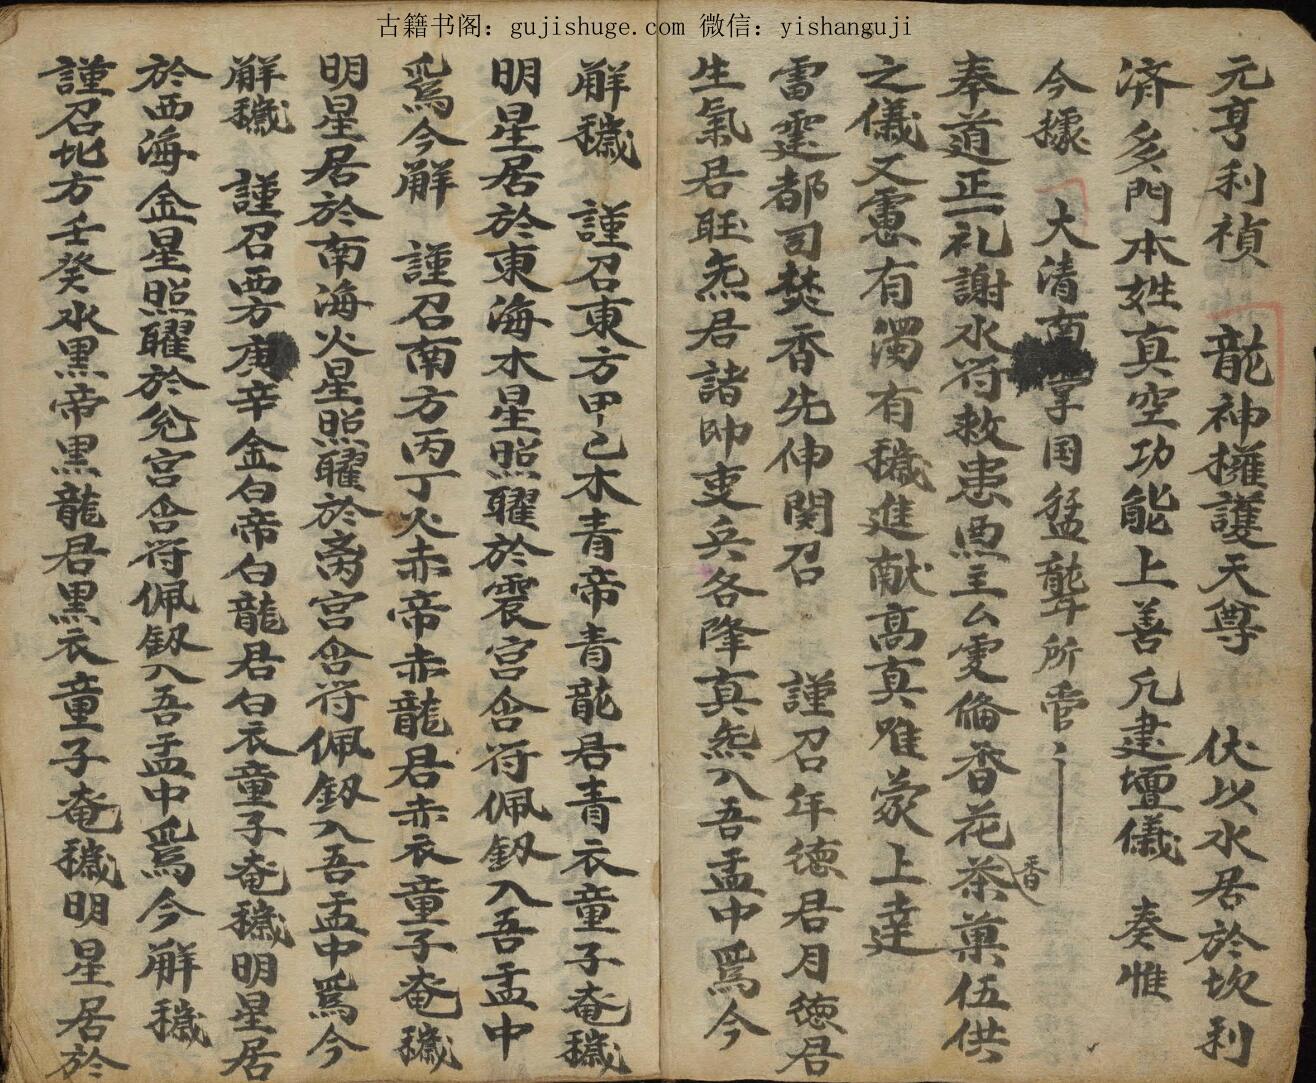 古籍书阁：gujishuge.com 微信：yishanguji
元亨利禎　龍神擁護天尊　伏以水居於坎利
済多門本姓真空功能上善凢建壇儀　奏惟
今據　大清南掌国猛聾所管
奉道正礼謝水符救患主么雯倫香花茶菓伍供
香
之儀又慮有濁有穢進献高真唯蒙上達
雷霆都司焚香先伸関召　謹召年徳君月徳君
生氣君旺炁君諸帅吏兵各降真炁入吾盂中爲今
觧穢　謹召東方甲乙木青帝青龍君青衣童子奄穢
明星居於東海木星照耀於震宫含符佩釼入吾盂中
爲今觧　謹召南方丙丁火赤帝赤龍君赤衣童子奄穢
明星居於南海火星照耀於离宫含符佩釼入吾盂中爲今
觧穢　謹召西方庚辛金白帝白龍君白衣童子奄穢明星居
於西海金星照耀於兊宫含符佩釼入吾盂中爲今觧穢
謹召北方壬癸水黒帝黒龍君黒衣童子奄穢明星居於